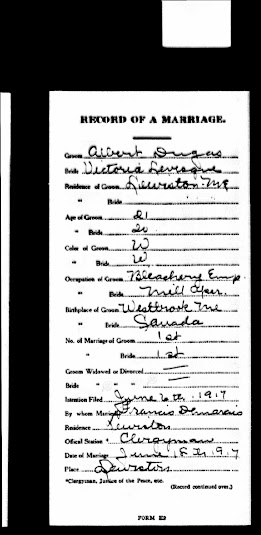 RECORD OF A MARRIAGE.
Groom Albert Dugas
Bride Victoria Levesque
Residence of Groom Lewiston Me
" Bride
Age of Groom 21
" Bride 20
Color of Groom W
" Bride W
Occupation of Groom Bleachery Emp.
" Bride Mill Oper.
Birthplace of Groom Westbrook Me
" Bride Canada
No. of Marriage of Groom 1st
" Bride 1st
Groom Widowed or Divorced
Bride " " "
Intention Filed June 6th 1917
By whom Married Francis Demarais
Residence Lewiston
Official Station * Clergyman
Date of Marriage June 18th 1917
Place Lewiston
*Clergyman, Justice of the Peace, etc.
(Record continued over.)
FORM